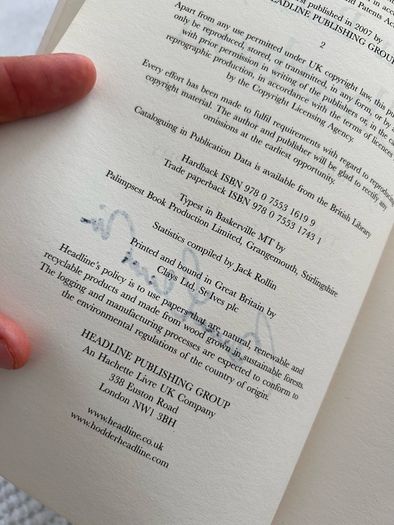 st published in 2007 by
HEADLINE PUBLISHING GROUP
2
Apart from any use permitted under UK copyright law, this pub
only be reproduced, stored, or transmitted, in any form, or by a
with prior permission in writing of the publishers or, in the ca
reprographic production, in accordance with the terms of licences
by the Copyright Licensing Agency.
Every effort has been made to fulfil requirements with regard to reproducing
copyright material. The author and publisher will be glad to rectify any
omissions at the earliest opportunity.
Cataloguing in Publication Data is available from the British Library
Hardback ISBN 978 0 7553 1619 9
Trade paperback ISBN 978 0 7553 1743 1
Typeset in Baskerville MT by
Palimpsest Book Production Limited, Grangemouth, Stirlingshire
Statistics compiled by Jack Rollin
Printed and bound in Great Britain by
Clays Ltd, St Ives plc
Headline's policy is to use papers that are natural, renewable and
recyclable products and made from wood grown in sustainable forests.
The logging and manufacturing processes are expected to conform to
the environmental regulations of the country of origin.
HEADLINE PUBLISHING GROUP
An Hachette Livre UK Company
338 Euston Road
London NW1 3BH
www.headline.co.uk
www.hodderheadline.com